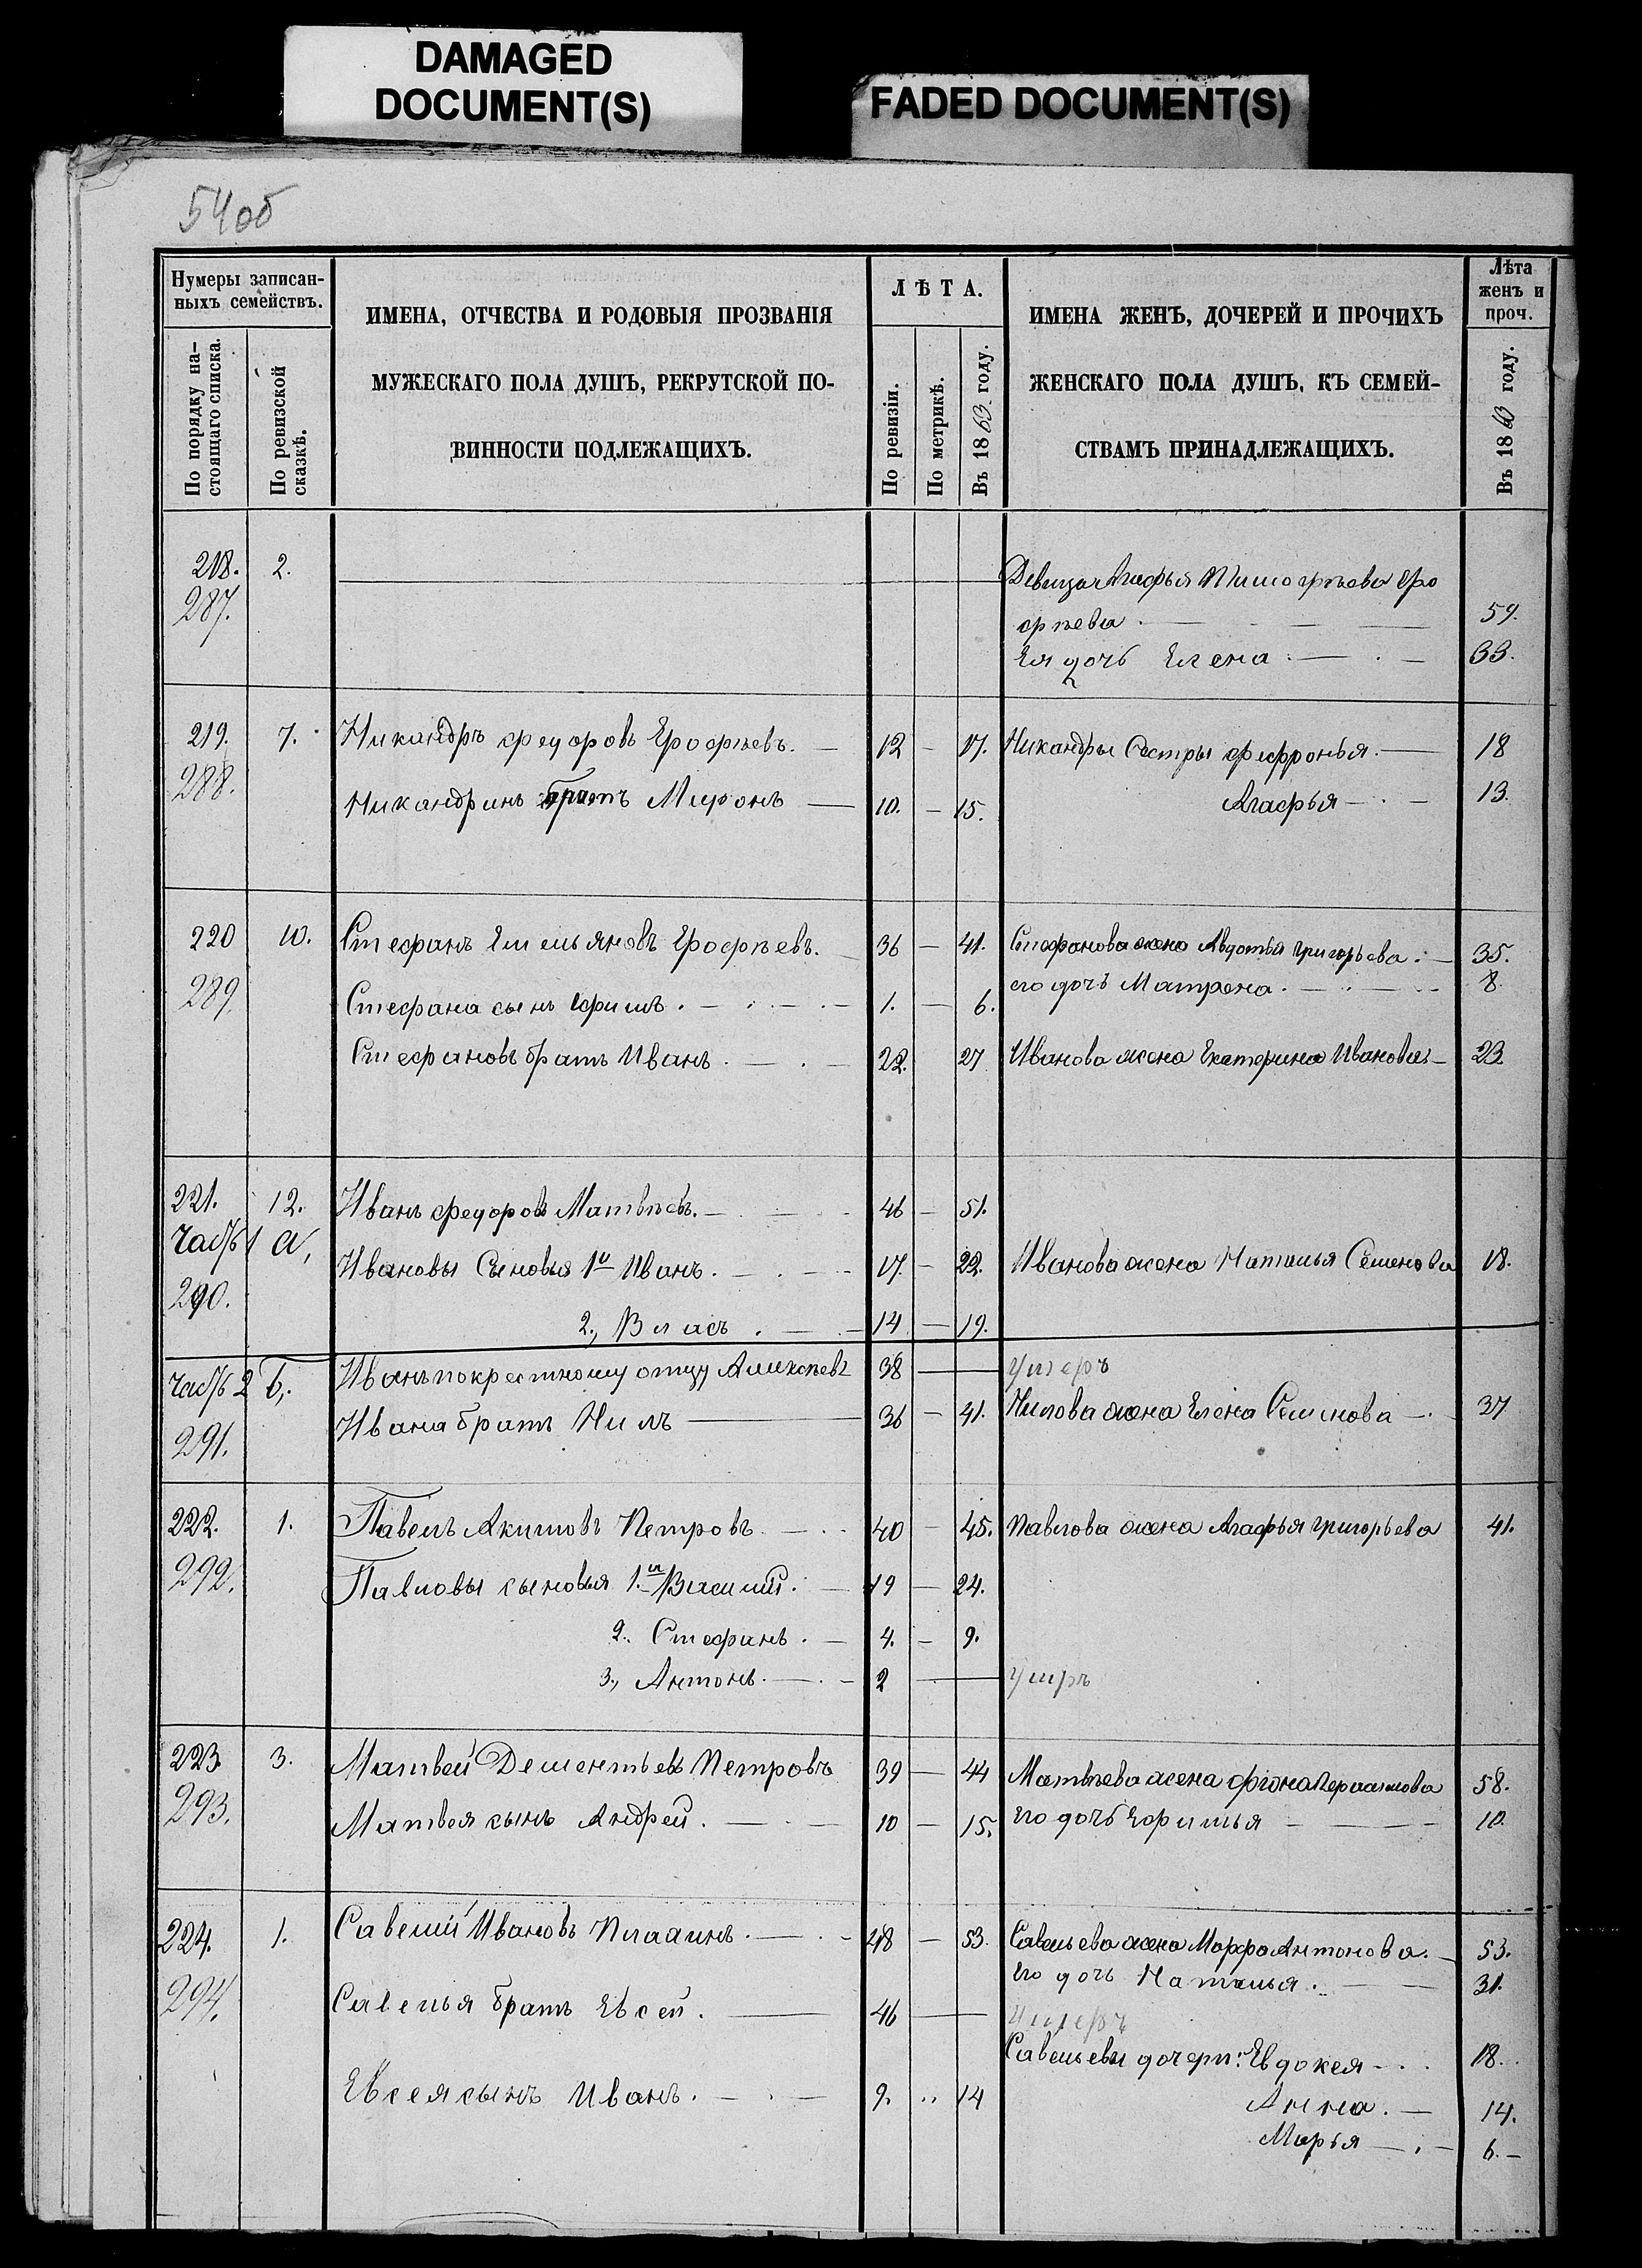 DAMAGED
DOCUMENT(S)
FADED DOCUMENT(S)
54об
Нумеры записан-
ныхъ семействъ.
По порядку на-
стоящаго списка.
По ревизской
сказкѣ.
ИМЕНА, ОТЧЕСТВА И РОДОВЫЯ ПРОЗВАНІЯ
МУЖЕСКАГО ПОЛА ДУШЪ, РЕКРУТСКОЙ ПО-
ВИННОСТИ ПОДЛЕЖАЩИХЪ.
ЛѢТА.
По ревизіи.
По метрикѣ.
Въ 1863 году.
ИМЕНА ЖЕНЪ, ДОЧЕРЕЙ И ПРОЧИХЪ
ЖЕНСКАГО ПОЛА ДУШЪ, КЪ СЕМЕЙ-
СТВАМЪ ПРИНАДЛЕЖАЩИХЪ.
Лѣта
женъ и
проч.
Въ 1863 году.
218. 2. Девица Агафья Тимофѣева Еро
287. фѣева 59.
Ея дочь Елена 33.
219. 7. Никандръ Федоровъ Ерофѣевъ. 12 17. Никандры Сестры Фефронья 18
288. Никандринъ братъ Миронъ 10. 15. Агафья 13.
220 10. Стефанъ Емельяновъ Ерофѣевъ. 36 41. Стефанова жена Авдотья Григорьева 35.
289. его дочь Матрена 8.
Стефана сынъ Ефимъ. 1. 6.
Стефановъ братъ Иванъ. 22. 27 Иванова жена Екатерина Иванова 23.
221. 12. Иванъ Федоровъ Матвѣевъ. 46 51.
Часть 1 а,
290. Ивановы Сыновья 1й Иванъ. 17. 22. Иванова жена Наталья Семенова 18.
2., Власъ. 14 19.
часть 2 б, Иванъ по крестному отцу Алексѣевъ 38 умеръ
291. Ивана братъ Нилъ 36 41. Нилова жена Елена Семенова 37
222. 1. Павелъ Акимовъ Петровъ 40 45. Павлова жена Агафья Григорьева 41.
292. Павловы сыновья 1.й Василий. 19 24.
2. Стефанъ. 4. 9.
3., Антонъ. 2 умеръ
223. 3. Матвей Дементьевъ Петровъ 39 44 Матвѣева жена Фіона Герасимова 58.
293. Матвея сынъ Андрей. 10 15. Его дочь Ефимья 10.
224. 1. Савелий Ивановъ 48 53. Савельева жена Марфа Антонова. 53.
294. Его дочь Наталья. 31.
Савелья братъ Евсей. 46 умеръ
Савельевы дочери: Евдокея 18.
Евсея сынъ Иванъ. 9. 14 Анна. 14.
Марья 6.